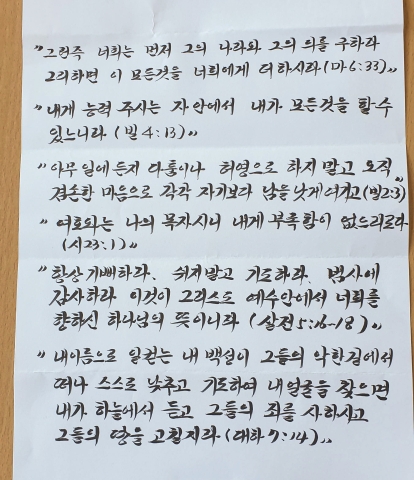 "그런즉 너희는 먼저 그의 나라와 그의 의를 구하라
그리하면 이 모든것을 너희에게 더하시리라(마6:33)"
"내게 능력 주시는 자 안에서 내가 모든것을 할수
있느니라 (빌4:13)"
"아무 일에든지 다툼이나 허영으로 하지 말고 오직
겸손한 마음으로 각각 자기보다 남을 낫게 여기고(빌2:3)"
"여호와는 나의 목자시니 내게 부족함이 없으리로다
(시23:1)"
"항상 기뻐하라. 쉬지말고 기도하라. 범사에
감사하라 이것이 그리스도 예수안에서 너희를
향하신 하나님의 뜻이니라 (살전5:16-18)"
"내이름으로 일컫는 내 백성이 그들의 악한길에서
떠나 스스로 낮추고 기도하여 내얼굴을 찾으면
내가 하늘에서 듣고 그들의 죄를 사하시고
그들의 땅을 고칠지라 (대하7:14)"